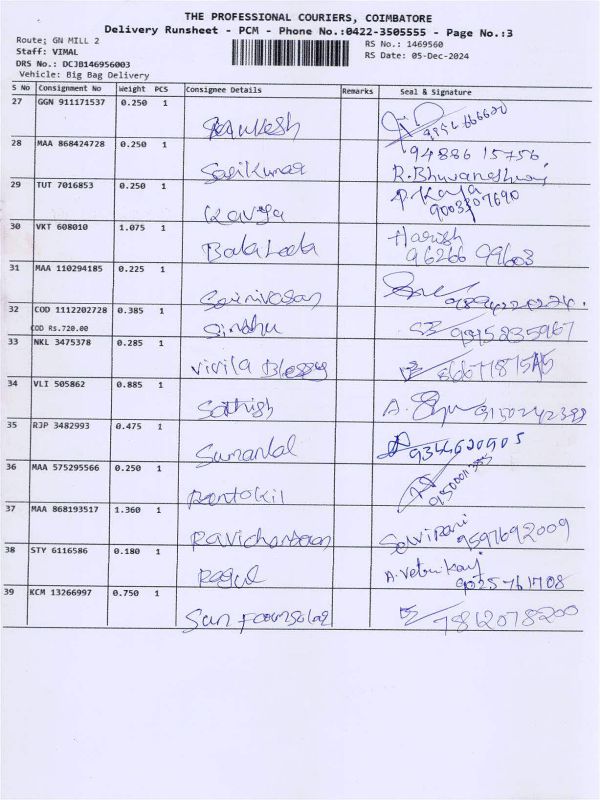 THE PROFESSIONAL COURIERS, COIMBATORE
Delivery Runsheet - PCM - Phone No.:0422-3505555 - Page No.:3
Route: GN MILL 2
RS No.: 1469560
Staff: VIMAL
RS Date: 05-Dec-2024
DRS No.: DCJB146956003
Vehicle: Big Bag Delivery
S No Consignment No Weight PCS Consignee Details Remarks Seal & Signature
27 GGN 911171537 0.250 1
Mukesh
28 MAA 868424728 0.250 1 94886 15756
Sasikumar R. Bhuvaneshwari
29 TUT 7016853 0.250 1 P. Kavya
Kavya 9003307690
30 VKT 608010 1.075 1 Harish
Bala 96266 99603
31 MAA 110294185 0.225 1
Srinivasan
32 COD 1112202728 0.385 1
COD Rs.720.00 Sindhu
33 NKL 3475378 0.285 1
Vivila Blessy
34 VLI 505862 0.885 1
Sathish A.
35 RJP 3482993 0.475 1
Sumanlal 9344620905
36 MAA 575295566 0.250 1
Rentokil
37 MAA 868193517 1.360 1 Selvirani
Ravichandran 9597692009
38 STY 6116586 0.180 1
Ragul
39 KCM 13266997 0.750 1
Sun 7862078200